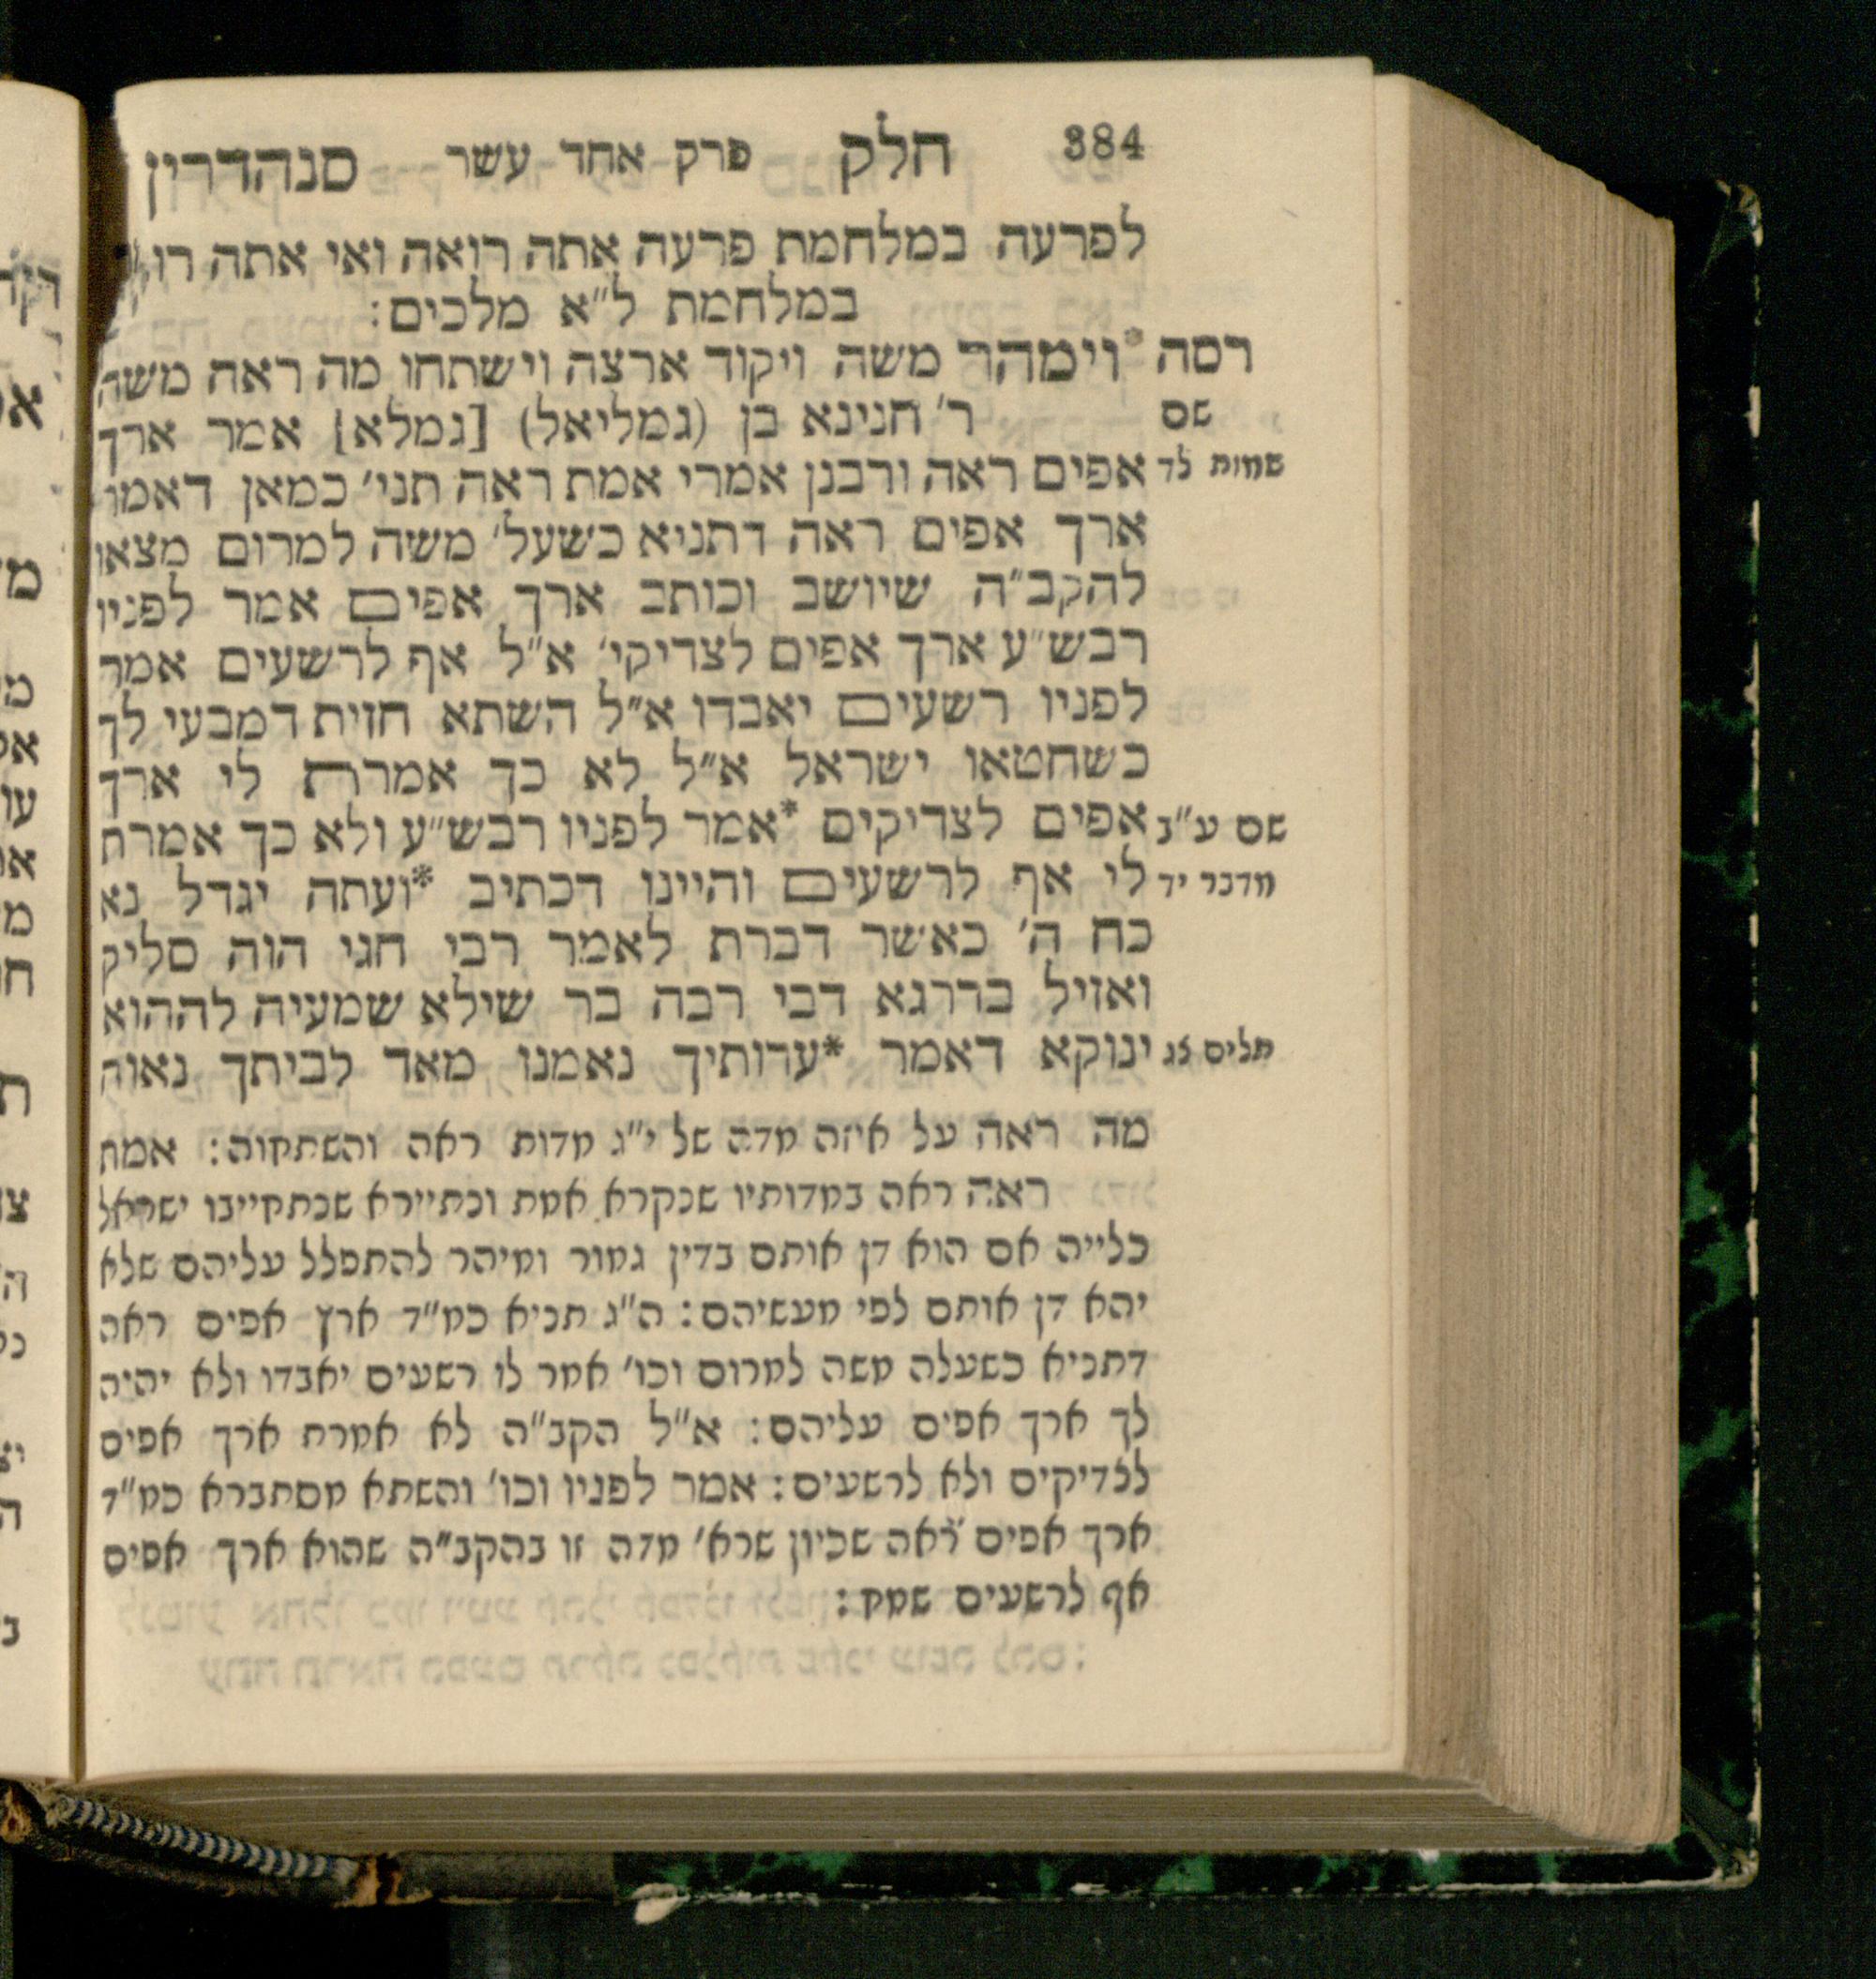 384 חלק פרק אחד עשר סנהדרין
לפרעה במלחמת פרעה אתה רואה ואי אתה
במלחמת ל״א מלכים:
רסה *וימהר משה ויקוד ארצה וישתחו מה ראה משה
שם ר׳ חנינא בן (גמליאל) [גמלא] אמר ארך
שמות לד אפים ראה ורבנן אמרי אמת ראה תני׳ כמאן דאמר
ארך אפים ראה דתניא כשעל׳ משה למרום מצאו
להקב״ה שיושב וכותב ארך אפים אמר לפניו
רבש״ע ארך אפים לצדיקי׳ א״ל אף לרשעים אמר
לפניו רשעים יאבדו א״ל השתא חזית דמבעי לך
כשחטאו ישראל א״ל לא כך אמרת לי ארך
שם ע״ב אפים לצדיקים *אמר לפניו רבש״ע ולא כך אמרת
מדבר יד לי אף לרשעים והיינו דכתיב *ועתה יגדל נא
כח ה׳ כאשר דברת לאמר רבי חגי הוה סליק
ואזיל בדרגא דבי רבה בר שילא שמעיה לההוא
תלים צג ינוקא דאמר *עדותיך נאמנו מאד לביתך נאוה
מה ראה על איזה מדה של י״ג מדות ראה והשתחוה: אמת
ראה ראה במדותיו שנקרא אמת ונתיירא שנתחייבו ישראל
כלייה אם הוא דן אותם בדין גמור ומיהר להתפלל עליהם שלא
יהא דן אותם לפי מעשיהם: ה״ג תניא כמ״ד ארץ אפים ראה
דתניא כשעלה משה למרום וכו׳ אמר לו רשעים יאבדו ולא יהיה
לך ארך אפים עליהם: א״ל הקב״ה לא אמרת ארך אפים
לצדיקים ולא לרשעים: אמר לפניו וכו׳ והשתא מסתברא כמ״ד
ארך אפים ראה שכיון שרא׳ מדה זו בהקב״ה שהוא ארך אפים
אף לרשעים שמח: